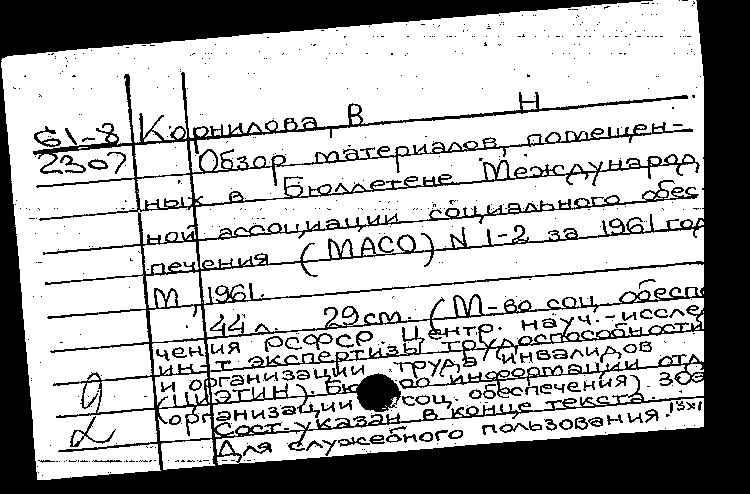 61-8 Корнилова, В Н
2307 Обзор материалов, помещен-
ных в Бюллетене Международ
ной ассоциации социального обес
печения (МАСО) N 1-2 за 1961 год
М, 1961.
44 л. 29 см. (М-во соц. обеспе
чения РСФСР. Центр. науч.-иссле
ин-т экспертизы трудоспособности
и организации труда инвалидов
(ЦИЭТИН). Бюро информации отд
(организации соц. обеспечения) 30э
Сост. указан в конце текста.
Для служебного пользования.
2